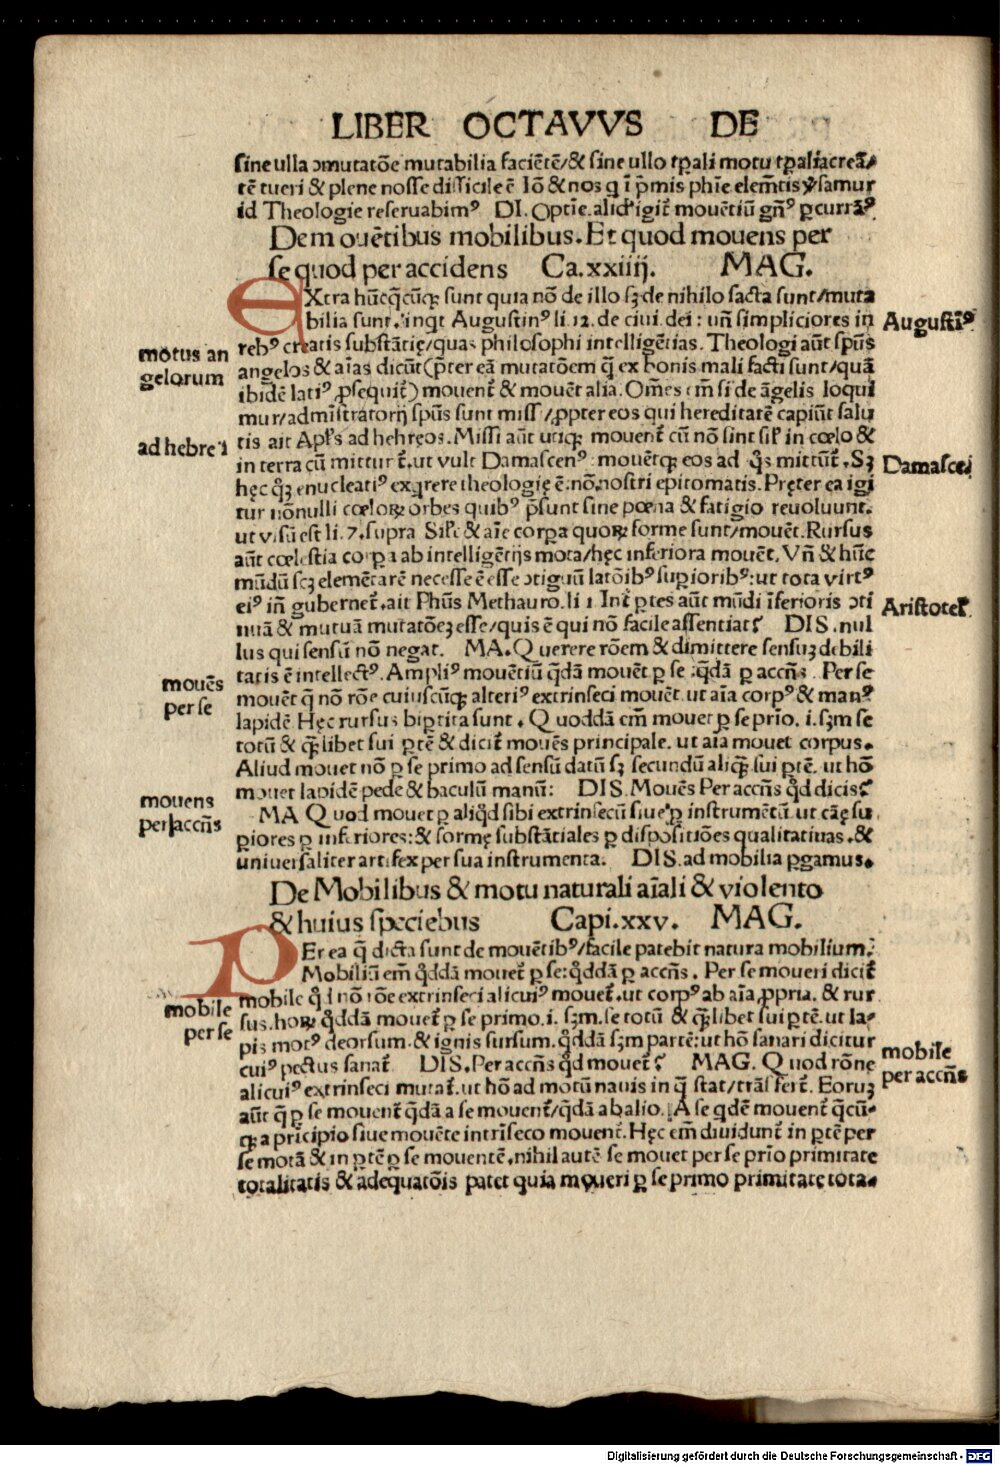 LIBER OCTAVVS DE
sine ulla ɔmutatõe mutabilia faciẽtẽ/& sine ullo tꝑali motu tꝑalia creã/
tẽ tueri & plene nosse difficile ẽ Iõ & nos q ĩ p̃mis phi̅e elem̃tis ỽsamur
id Theologie reseruabimꝰ DI. Optĩe. mouẽtiũ gñꝰ ꝑcurrãꝰ
De mouẽtibus mobilibus. Et quod mouens per
se quod per accidens Ca.xxiiij. MAG.
EXtra hũcq̃cũqꝫ sunt quia nõ de illo sꝫ de nihilo facta sunt/muta
bilia sunt. inqt Augustinꝰ li.12. de ciui. dei: uñ simpliciores in
Augustĩꝰ
rebꝰ creatis substãtię/quas philosophi intelligẽtias. Theologi aũt spũs
motus an
gelorum
angelos & aĩas dicũt (p̃ter eã mutatõem q̃ ex bonis mali facti sunt/quã
ibidẽ latiꝰ ꝓsequit̃) mouent̃ & mouẽt alia. Om̃es em̃ si de ãgelis loqui
mur/admĩstratorij spũs sunt missi/ꝓpter eos qui hereditatẽ capiũt salu
tis ait Apl̃s ad hebręos. Missi aũt utiqꝫ mouent̃ cũ nõ sint sil̃ in cœlo &
ad hebre.1
in terra cũ mittur t̃. ut vult Damascenꝰ mouẽtqꝫ eos ad q̃s mittũt̃. Sꝫ
Damascẽi
hęc q̃ꝫ enucleatiꝰ exq̃rere theologię ẽ: nõ nostri epitomatis. Pręter ea igi
tur nõnulli cœloꝝ orbes quibꝰ p̃sunt sine pœna & fatigio reuoluunt.
ut visũ est li.7. supra Sil̃e & aĩe corꝑa quoꝝ forme sunt/mouẽt. Rursus
aũt cœlestia corꝑa ab intelligẽtijs mota/hęc inferiora mouẽt. Vñ & hũc
mũdũ scꝫ elemẽtarẽ necesse ẽ esse ɔtiguũ latõibꝰ suꝑioribꝰ: ut tota virtꝰ
eiꝰ iñ gubernet̃. ait Phũs Metheauro. li 1 Int̃ ꝑtes aũt mũdi ĩferioris ɔti
Aristoteł
nuã & mutuã mutatõeꝫ esse/quis ẽ qui nõ facile assentiat? DIS. nul
lus qui sensũ nõ negat. MA. Querere rõem & dimittere sensuꝫ debili
tatis ẽ intellectꝰ. Ampliꝰ mouẽtiũ q̃dã mouẽt ꝑ se: q̃dã ꝑ accñs. Per se
mouẽs
per se
mouẽt q̃ nõ rõe cuiuscũqꝫ alteriꝰ extrinseci mouẽt. ut aĩa corpꝰ & manꝰ
lapidẽ Hęc rursus biꝑtita sunt. Quoddã em̃ mouet ꝑ se prio. i. sꝫm se
totũ & q̃libet sui ꝑtẽ & dicit̃ mouẽs principale. ut aĩa mouet corpus.
Aliud mouet nõ ꝑ se primo ad sensũ datũ sꝫ secundũ aliq̃ sui ꝑtẽ. ut hõ
mouet lapidẽ pede & baculũ manũ: DIS. Mouẽs Per accñs q̃d dicis?
mouens
per accñs
MA Quod mouet ꝑ aliq̃d sibi extrinsecũ siue ꝑ instrumẽtũ. ut cãę su
ꝑiores ꝑ inferiores: & formę substãtiales ꝑ dispositiões qualitatiuas. &
uniuersaliter artifex per sua instrumenta. DIS. ad mobilia ꝑgamus.
De Mobilibus & motu naturali aĩali & violento
& huius speciebus Capi.xxv. MAG.
PEr ea q̃ dicta sunt de mouẽtibꝰ/facile patebit natura mobilium.
Mobiliũ em̃ q̃ddã mouet̃ ꝑ se: q̃ddã ꝑ accñs. Per se moueri dicit̃
mobile q̃d nõ rõe extrinseci alicuiꝰ mouet̃. ut corpꝰ ab aĩa ꝓpria. & rur
mobile
per se
sus. hoꝝ q̃ddã mouet̃ ꝑ se primo. i. sꝫm. se totũ & q̃libet sui ꝑtẽ. ut la-
pis motꝰ deorsum. & ignis sursum. q̃ddã sꝫm partẽ: ut hõ sanari dicitur
cuiꝰ pectus sanat̃. DIS. Per accñs q̃d mouet̃? MAG. Quod rõne
mobile
per accñs
alicuiꝰ extrinseci mutat̃. ut hõ ad motũ nauis in q̃ stat/trãsfert̃. Eoruꝫ
aũt q̃ ꝑ se mouent̃ q̃dã a se mouent̃/q̃dã ab alio. A se qdẽ mouent̃ q̃cũ-
qꝫ a prĩcipio siue mouẽte intrĩseco mouent̃. Hęc em̃ diuidunt̃ in ꝑtẽ per
se motã & in ꝑtẽ ꝑ se mouentẽ. nihil autẽ se mouet per se prĩo primitate
totalitatis & adequatõis patet quia moueri ꝑ se primo primitate tota-